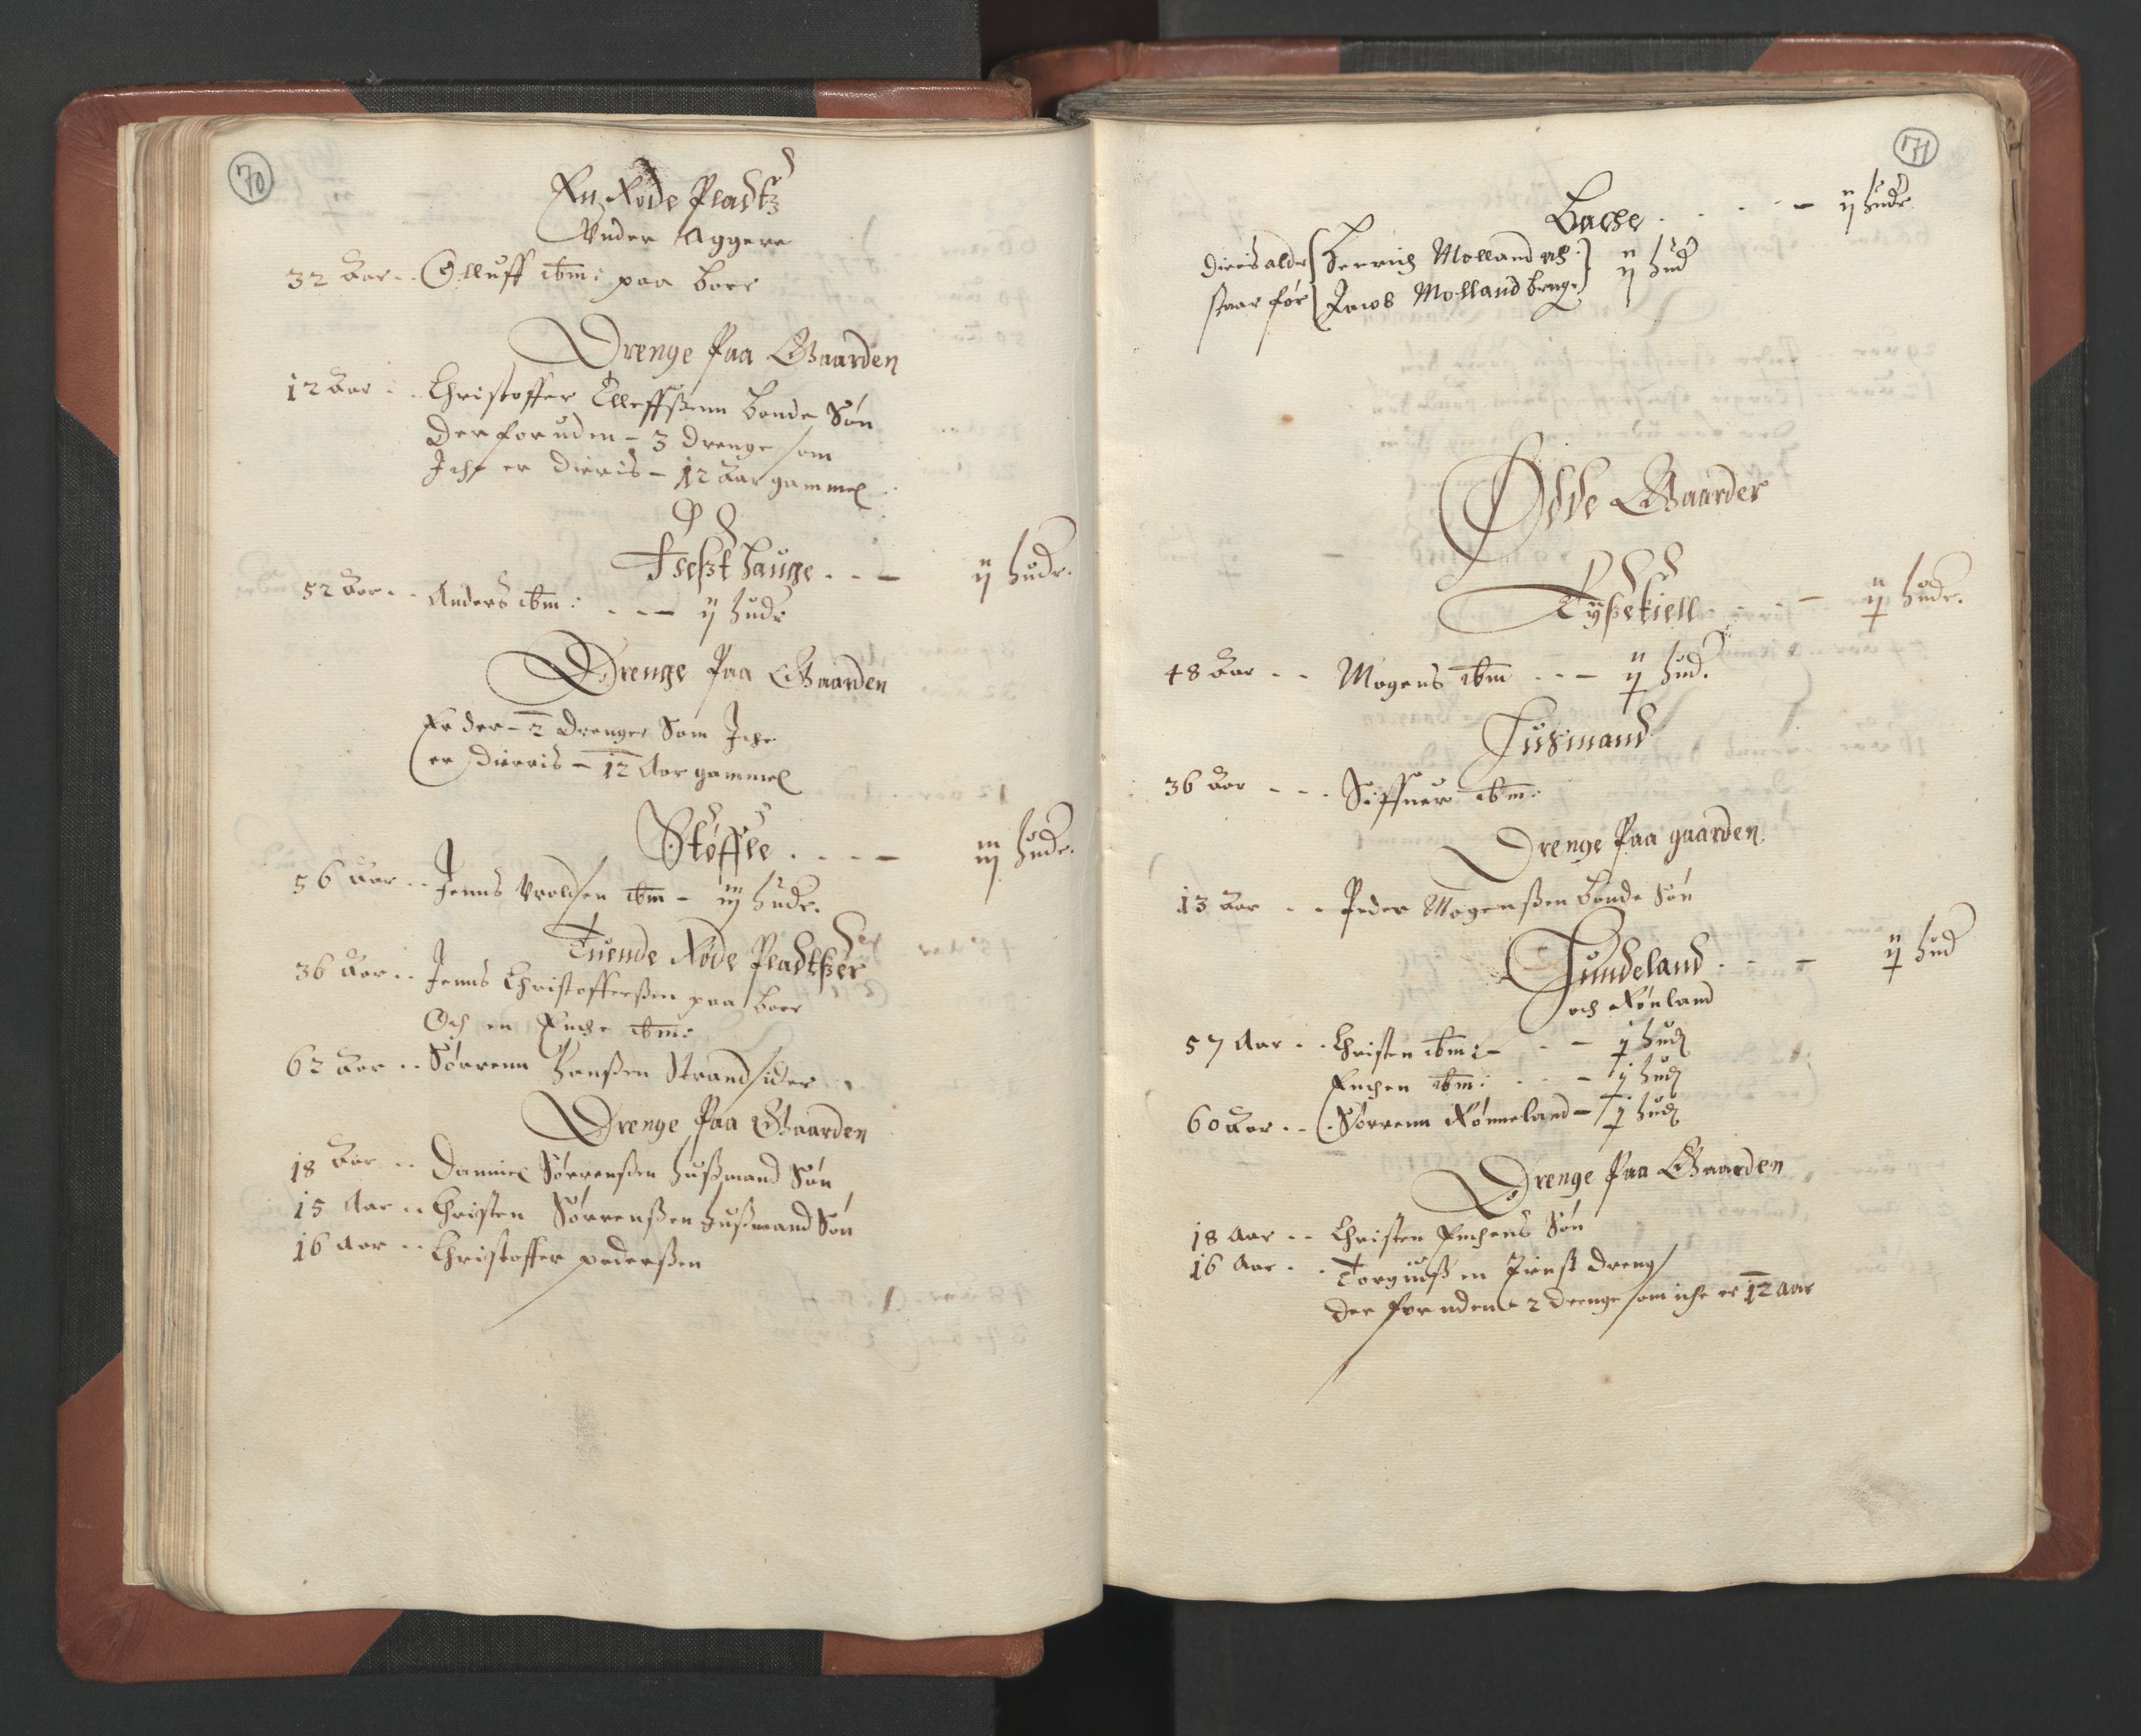 70
En Røde Pladtz
Vnder Aggere
32 Aar - - Olluff ibm: paa boer
Drenge Paa Gaarden
12 Aar - - Christoffer Elleffsßenn bonde Søn
Der foruden - 3 drenge som
Iche er dieris - 12 Aar gammel
Hauge - - - ij hudr.
52 Aar - - Anders ibm: - - - ij hudr
Drenge Paa Gaarden
Er der - 2 Drenge Som Iche
er dierris - 12 Aar gammel
Støffle - - - - iij hudr.
56 Aar - - Jenns Vrolsen ibm - iij hudr.
Tuende Røde Pladtzer
36 Aar - - Jenns Christofferßen paa boer
Och en Enche ibm:
62 Aar - - Sørrenn Hanßen Strandsider
Drenge Paa Gaarden
18 Aar - - Danniel Sørrenßen hußmand Søn
15 Aar - - Christen Sørrenßen hußmand Søn
16 Aar - - Christoffer pederßen
71
Bache - - - - ij hudr
dieris alder { Henrich Molland och } ij hud
staar før { Molland bruge }
Øde Gaarder
Tyßekiell - - - - ij hudr.
48 Aar - - Mogens ibm - - - ij hud.
Husmand
36 Aar - - - Siffuer ibm:
Drenge Paa gaarden
13 Aar - - Peder Mogenßen bonde Søn
Sundeland - - - ij hud
och Rønland
57 Aar - - Christen ibm: - - - j hud
Enchen ibm: - - - j hud
60 Aar - - Sørrenn Rønneland - j hud
Drenge Paa Gaarden
18 Aar - - Christen Enchens Søn
16 Aar - - Torguls en Tienst dreng
Der foruden - 2 drenge som iche er 12 aar